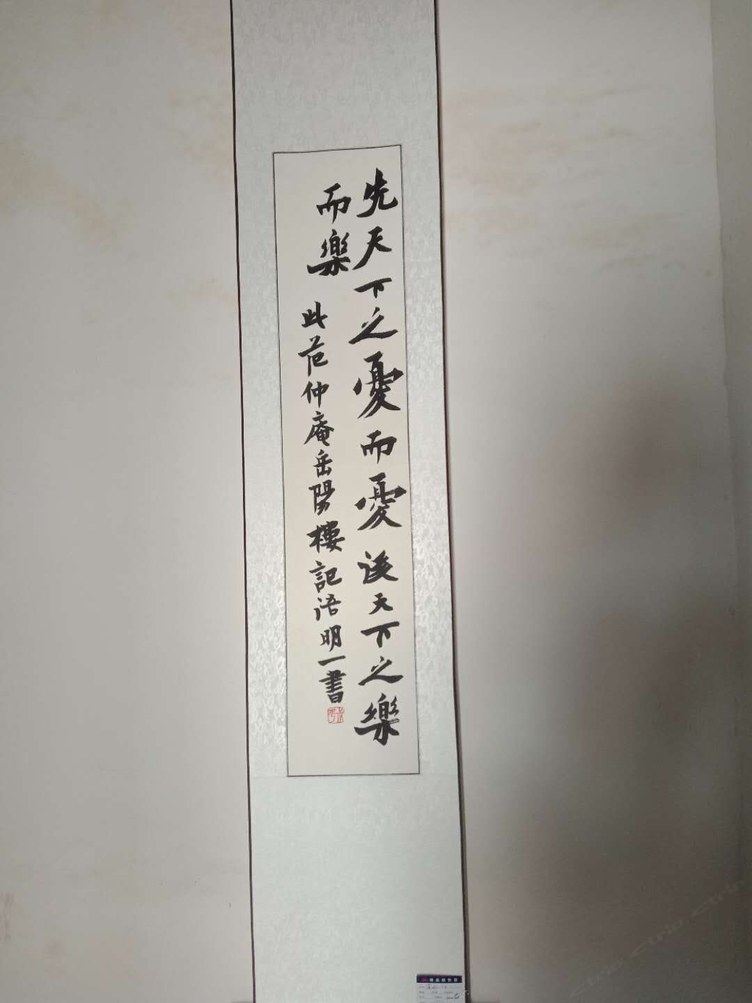 先天下之憂而憂後天下之樂
而樂
此范仲庵岳陽樓記浩明一書